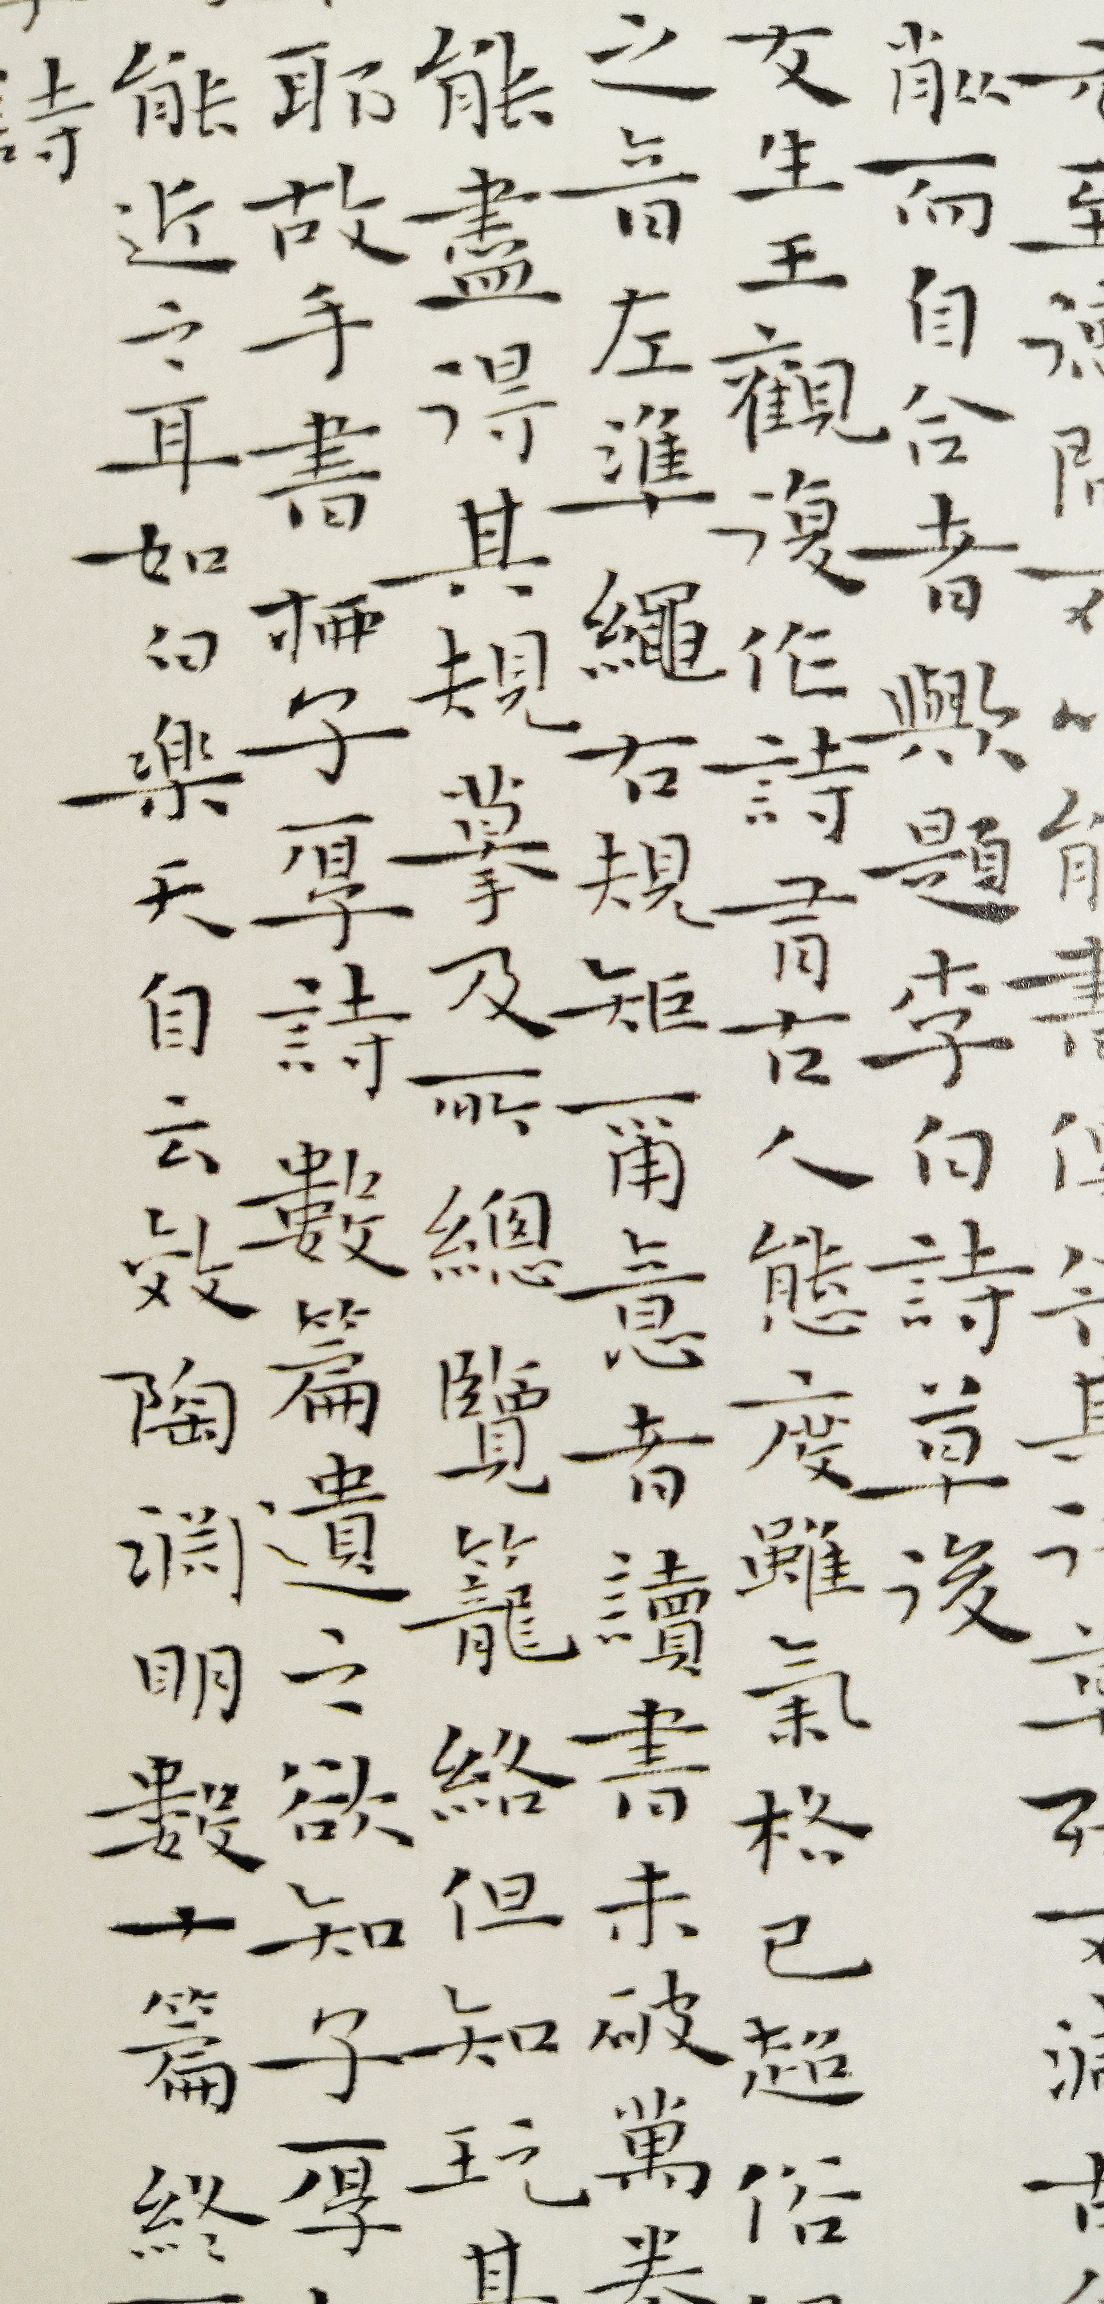 元至德間不以能書傳今其行草殊不減古人
削而自合者歟題李白詩草後
友生王觀復作詩有古人態度雖氣格已超俗但
之音左準繩右規矩爾意者讀書未破萬卷
能盡得其規摹及所總覽籠絡但知玩其
耶故手書柳子厚詩數篇遺之欲知子厚
能近之耳如白樂天自云效陶淵明數十篇終
詩